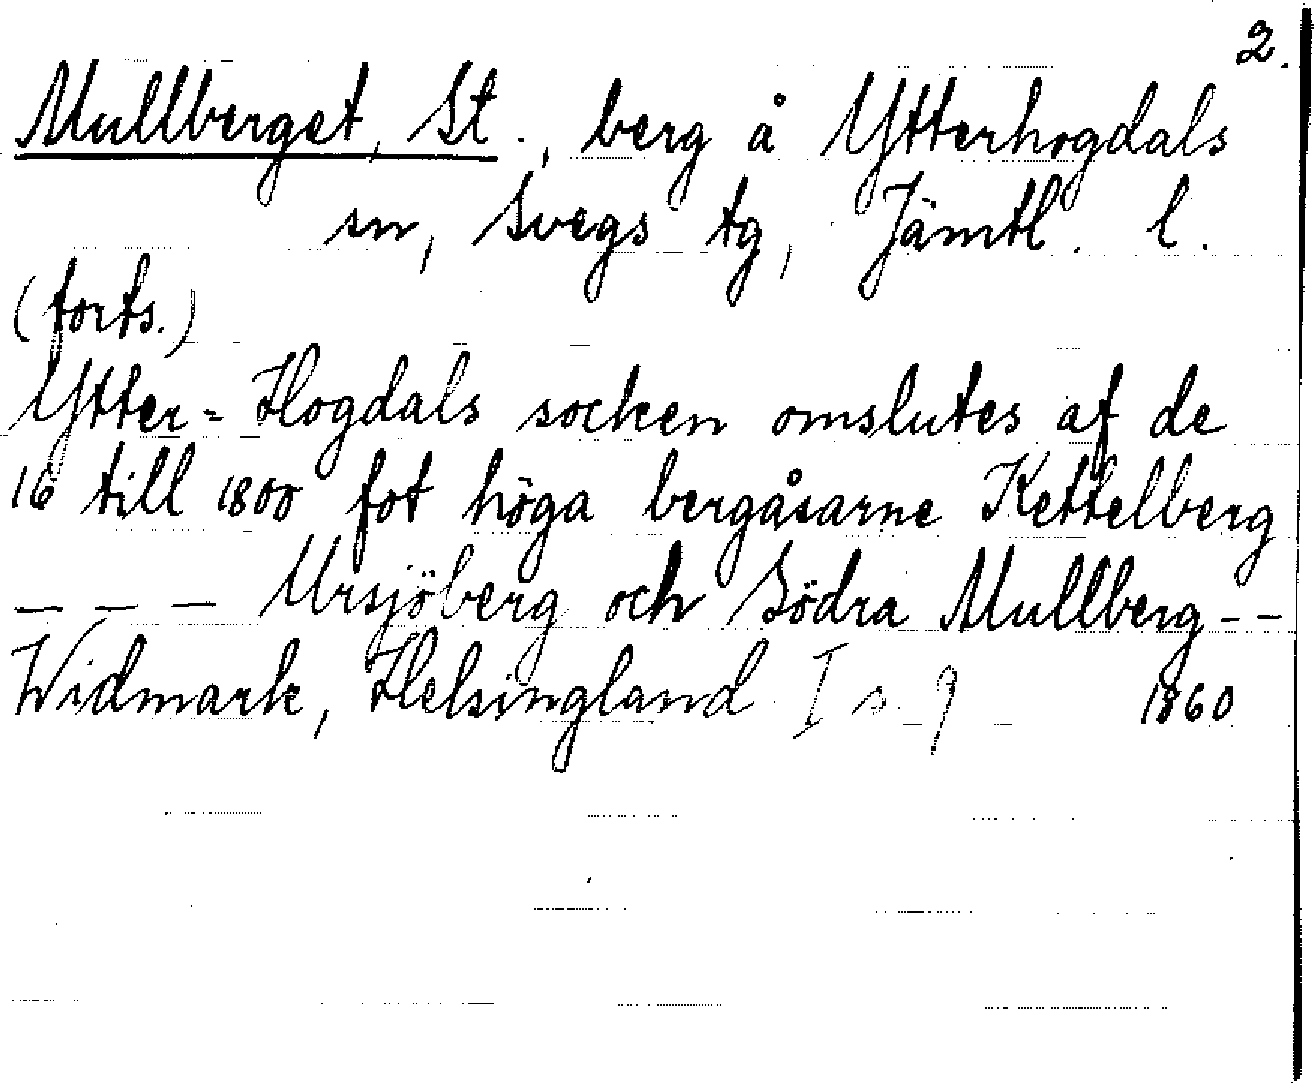 2.
Mullberget, St., berg å Ytterhogdals
sn, Svegs tg, Jämtl. l.
(forts.)
Ytter-Hogdals socken omslutes af de
16 till 1800 fot höga bergåsarne Kettelberg
— — — Ursjöberg och Södra Mullberg - -
Widmark, Helsingland I s. 9 1860